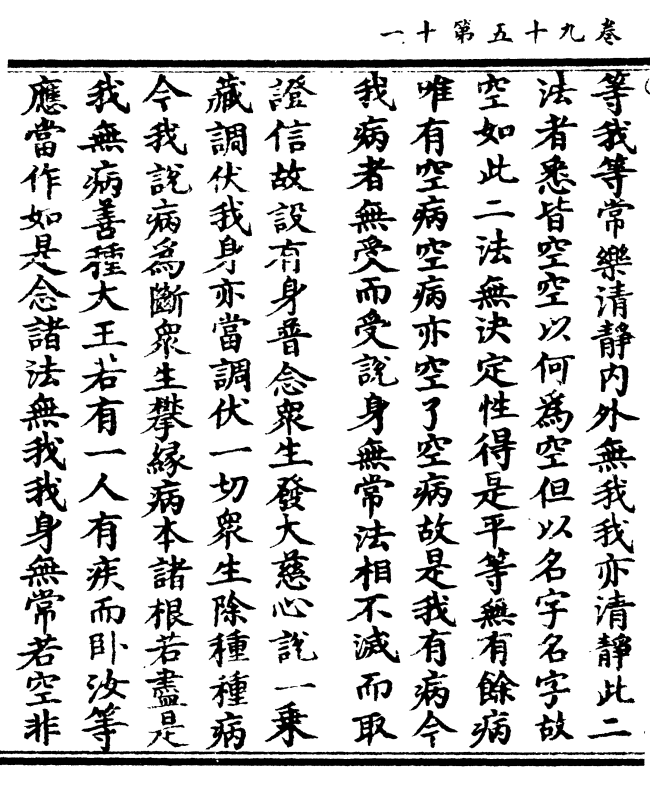 卷九十五第十一
等我等常樂清靜內外無我我亦清靜此二
法者悉皆空空以何為空但以名字名字故
空如此二法無決定性得是平等無有餘病
唯有空病空病亦空了空病故是我有病今
我病者無受而受說身無常法相不滅而取
證信故設有身普念眾生發大慈心說一乗
藏調伏我身亦當調伏一切眾生除種種病
今我說病為斷眾生攀緣病本諸根若盡是
我無病善種大王若有一人有疾而卧汝等
應當作如是念諸法無我我身無常若空非